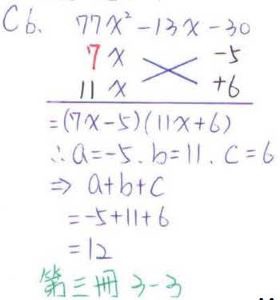 C6. 77x²-13x-30
7x -5
11x +6
=(7x-5)(11x+6)
∴a=-5、b=11、c=6
⇒ a+b+c
=-5+11+6
=12
第三冊 3-3